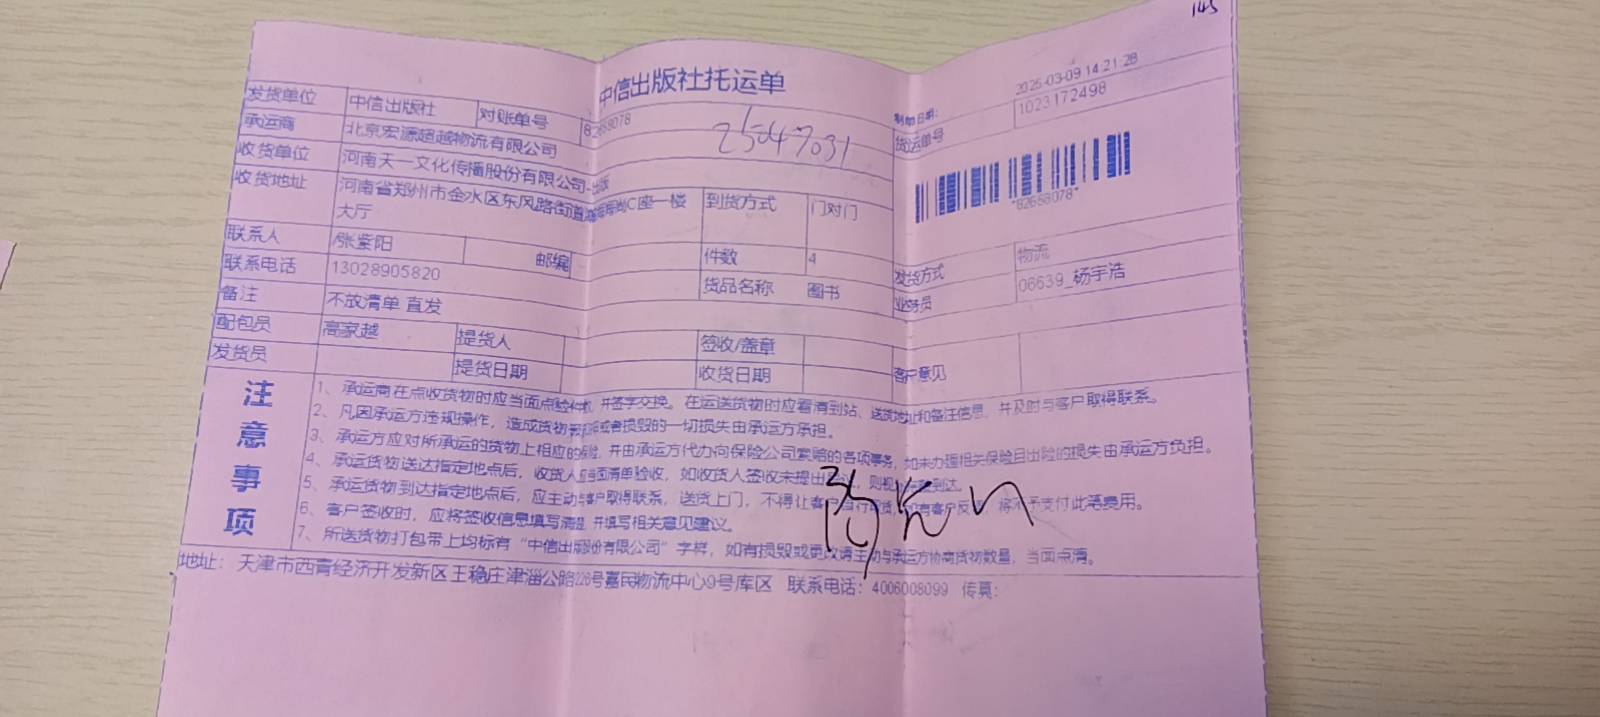 145
中信出版社托运单
制单日期: 2025-03-09 14:21:28
发货单位 中信出版社 对账单号 82658078 货运单号 1023172498
承运商 北京宏源超越物流有限公司 25047031
收货单位 河南天一文化传播股份有限公司-出版
*82658078*
收货地址 河南省郑州市金水区东风路街道 C座一楼 到货方式 门对门
大厅
联系人 张紫阳 邮编 件数 4 发货方式 物流
联系电话 13028905820 货品名称 图书 业务员 06639_杨宇浩
备注 不放清单 直发
配包员 高家越 提货人 签收/盖章 客户意见
发货员 提货日期 收货日期
注意事项
1、承运商在点收货物时应当面点验件数,并签字交换。在运送货物时应看清到站、送货地址和备注信息,并及时与客户取得联系。
2、凡因承运方违规操作,造成货物丢失或者损毁的一切损失由承运方承担。
3、承运方应对所承运的货物上相应的保险,并由承运方代办向保险公司索赔的各项事务,如未办理相关保险且出险的损失由承运方负担。
4、承运货物送达指定地点后,收货人应当面清单验收,如收货人签收未提出 ,则视 到达
5、承运货物到达指定地点后,应主动与客户取得联系,送货上门,不得让客户自行取货,如有客户反 将不予支付此笔费用。
6、客户签收时,应将签收信息填写清楚,并填写相关意见建议。
7、所送货物打包带上均标有“中信出版股份有限公司”字样,如有损毁或更改请主动与承运方协商货物数量,当面点清。
地址: 天津市西青经济开发新区王稳庄津淄公路226号嘉民物流中心9号库区 联系电话: 4006008099 传真: